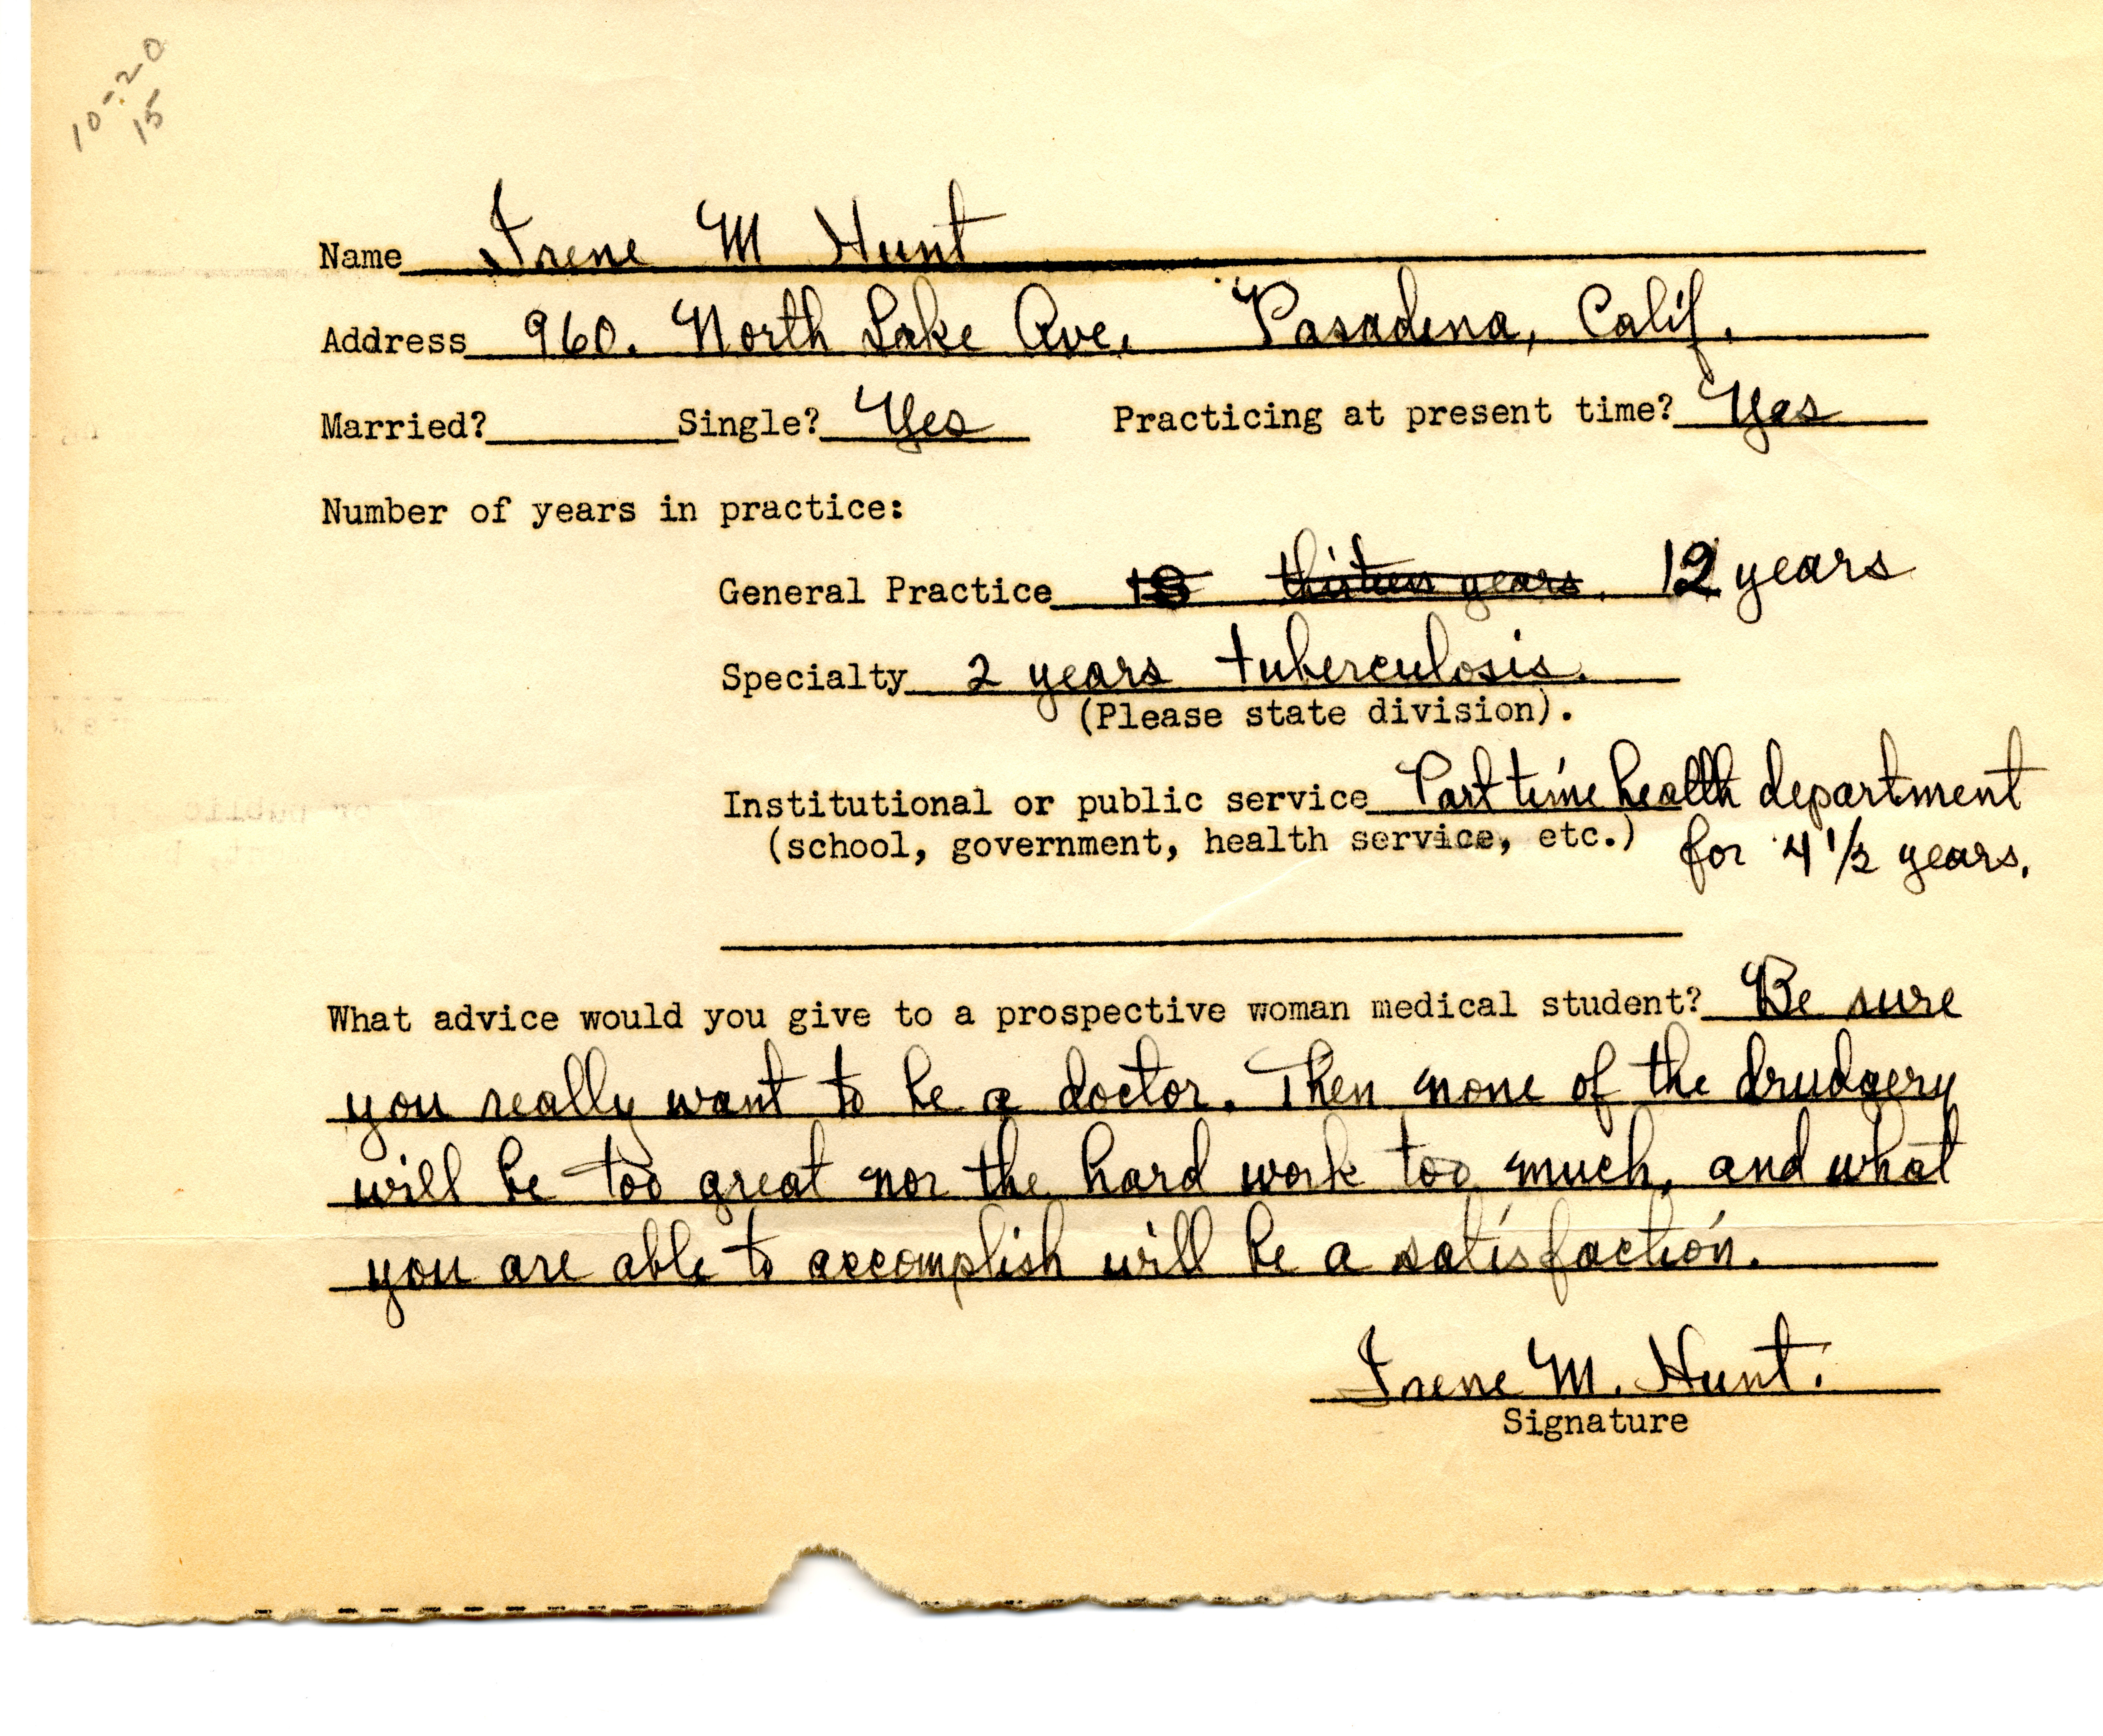 10-20
15
Name Irene M Hunt
Address 960. North Lake Ave. Pasadena, Calif.
Married? Single? Yes Practicing at present time? Yes
Number of years in practice:
General Practice thirteen years. 12 years
Specialty 2 years tuberculosis.
(Please state division).
Institutional or public service Part time health department
(school, government, health service, etc.) for 4 1/2 years.
What advice would you give to a prospective woman medical student? Be sure
you really want to be a doctor. Then none of the drudgery
will be too great nor the hard work too much, and what
you are able to accomplish will be a satisfaction.
Irene M. Hunt.
Signature